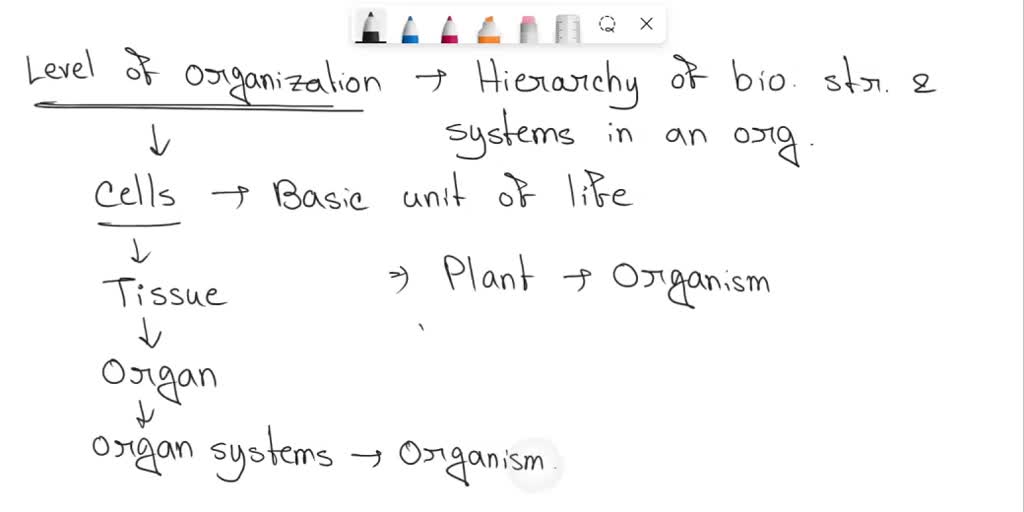 Level of organization → Hierarchy of bio. str. &
systems in an org.
↓
cells → Basic unit of life
↓
Tissue ⇒ Plant → Organism
↓
Organ
↓
organ systems → Organism.